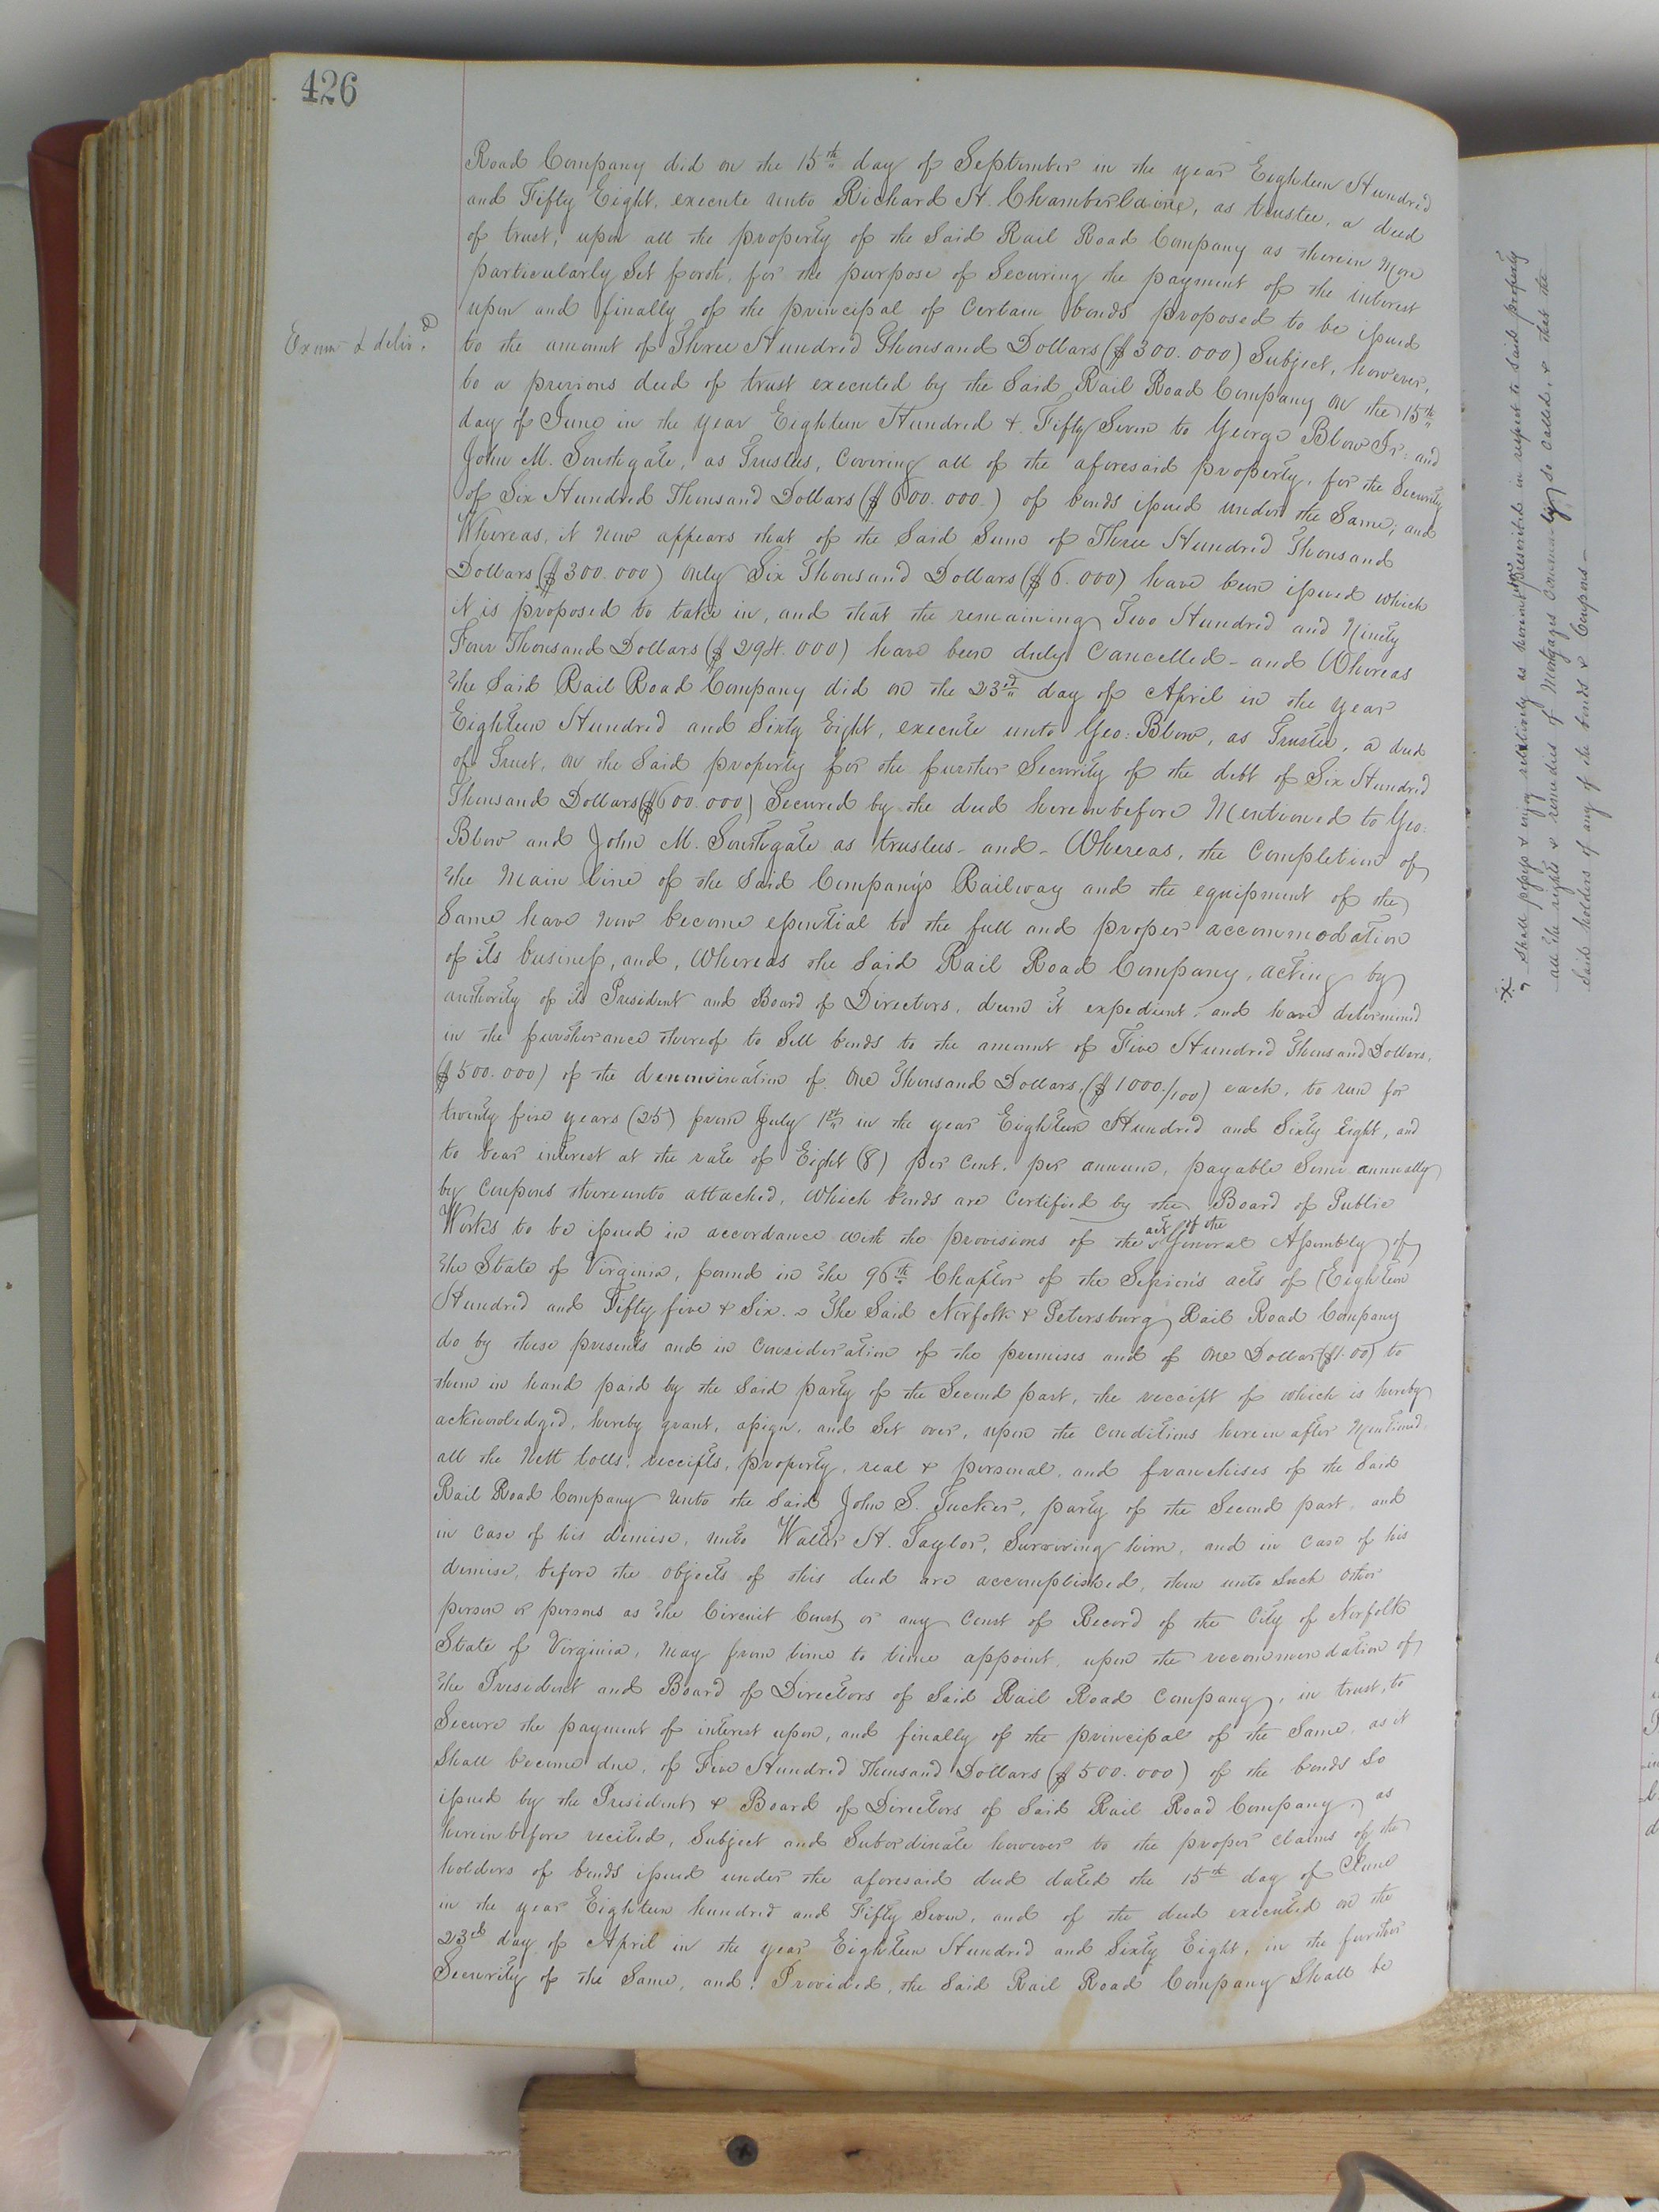 426
Road Company did on the 15th day of September in the year Eighteen Hundred
and Fifty Eight, execute unto Richard H. Chamberlaine, as trustee, a deed
of trust, upon all the property of the Said Rail Road Company as therein More
particularly Set forth, for the purpose of Securing the payment of the interest
upon and finally of the principal of Certain bonds proposed to be issued
Exam & deliv.d
to the amount of Three Hundred Thousand Dollars ($300.000) Subject, however,
to a previous deed of trust executed by the Said Rail Road Company on the 15th
day of June in the year Eighteen Hundred & Fifty Seven to George Blow Jr. and
John M. Southgate, as Trustees, Covering all of the aforesaid property, for the Security
of Six Hundred Thousand Dollars ($600.000.) of bonds issued under the Same; and
Whereas, it now appears that of the Said Sum of Three Hundred Thousand
Dollars ($300.000) only Six Thousand Dollars ($6.000) have been issued which
it is proposed to take in, and that the remaining Two Hundred and Ninety
Four Thousand Dollars ($294.000) have been duly Cancelled - and Whereas
the Said Rail Road Company did on the 23rd day of April in the year
Eighteen Hundred and Sixty Eight, execute unto Geo: Blow, as Trustee, a deed
of Trust, on the Said property for the further Security of the debt of Six Hundred
Thousand Dollars ($600.000) Secured by the deed hereinbefore Mentioned to Geo:
Blow and John M. Southgate as trustees - and - Whereas, the Completion of
the Main line of the Said Company's Railway and the equipment of the
Same have now become essential to the full and proper accommodation
of its business, and, Whereas the Said Rail Road Company, acting by
authority of its President and Board of Directors, deem it expedient, and have determined
in the furtherance thereof to Sell bonds to the amount of Five Hundred Thousand Dollars,
($500.000) of the denomination of One Thousand Dollars, ($1000./100) each, to run for
twenty five years (25) from July 1st in the year Eighteen Hundred and Sixty Eight, and
to bear interest at the rate of Eight (8) per cent. per annum, payable Semi annually
by Coupons thereunto attached, which bonds are Certified by the Board of Public
Works to be issued in accordance with the provisions of the act of the General Assembly of
the State of Virginia, found in the 96th Chapter of the Session's acts of Eighteen
Hundred and Fifty five & Six. The Said Norfolk & Petersburg Rail Road Company
do by these presents and in Consideration of the premises and of One Dollar ($1.00) to
them in hand paid by the Said party of the Second part, the receipt of which is hereby
acknowledged, hereby grant, assign, and Set over, upon the Conditions herein after Mentioned
all the Nett tolls, receipts, property, real & personal, and franchises of the Said
Rail Road Company unto the Said John S. Tucker, party of the Second part, and
in Case of his demise, unto Walter H. Taylor, Surviving him, and in Case of his
demise, before the objects of this deed are accomplished, then unto Such other
person or persons as the Circuit Court or any Court of Record of the City of Norfolk
State of Virginia, May from time to time appoint, upon the recommendation of
the President and Board of Directors of Said Rail Road Company, in trust, to
Secure the payment of interest upon, and finally of the principal of the Same, as it
Shall become due, of Five Hundred Thousand Dollars ($500.000) of the bonds So
issued by the President & Board of Directors of Said Rail Road Company, as
herein before recited, Subject and Subordinate however to the proper claims of the
holders of bonds issued under the aforesaid deed dated the 15th day of June
in the year Eighteen hundred and Fifty Seven, and of the deed executed on the
23d day of April in the year Eighteen Hundred and Sixty Eight, in the further
Security of the Same, and: Provided, the Said Rail Road Company Shall be
Shall possess & enjoy relatively as herein prescribed in respect to said property
all the rights & remedies of Mortgages Commonly so called, & that the
Said holders of any of the bonds & Coupons -